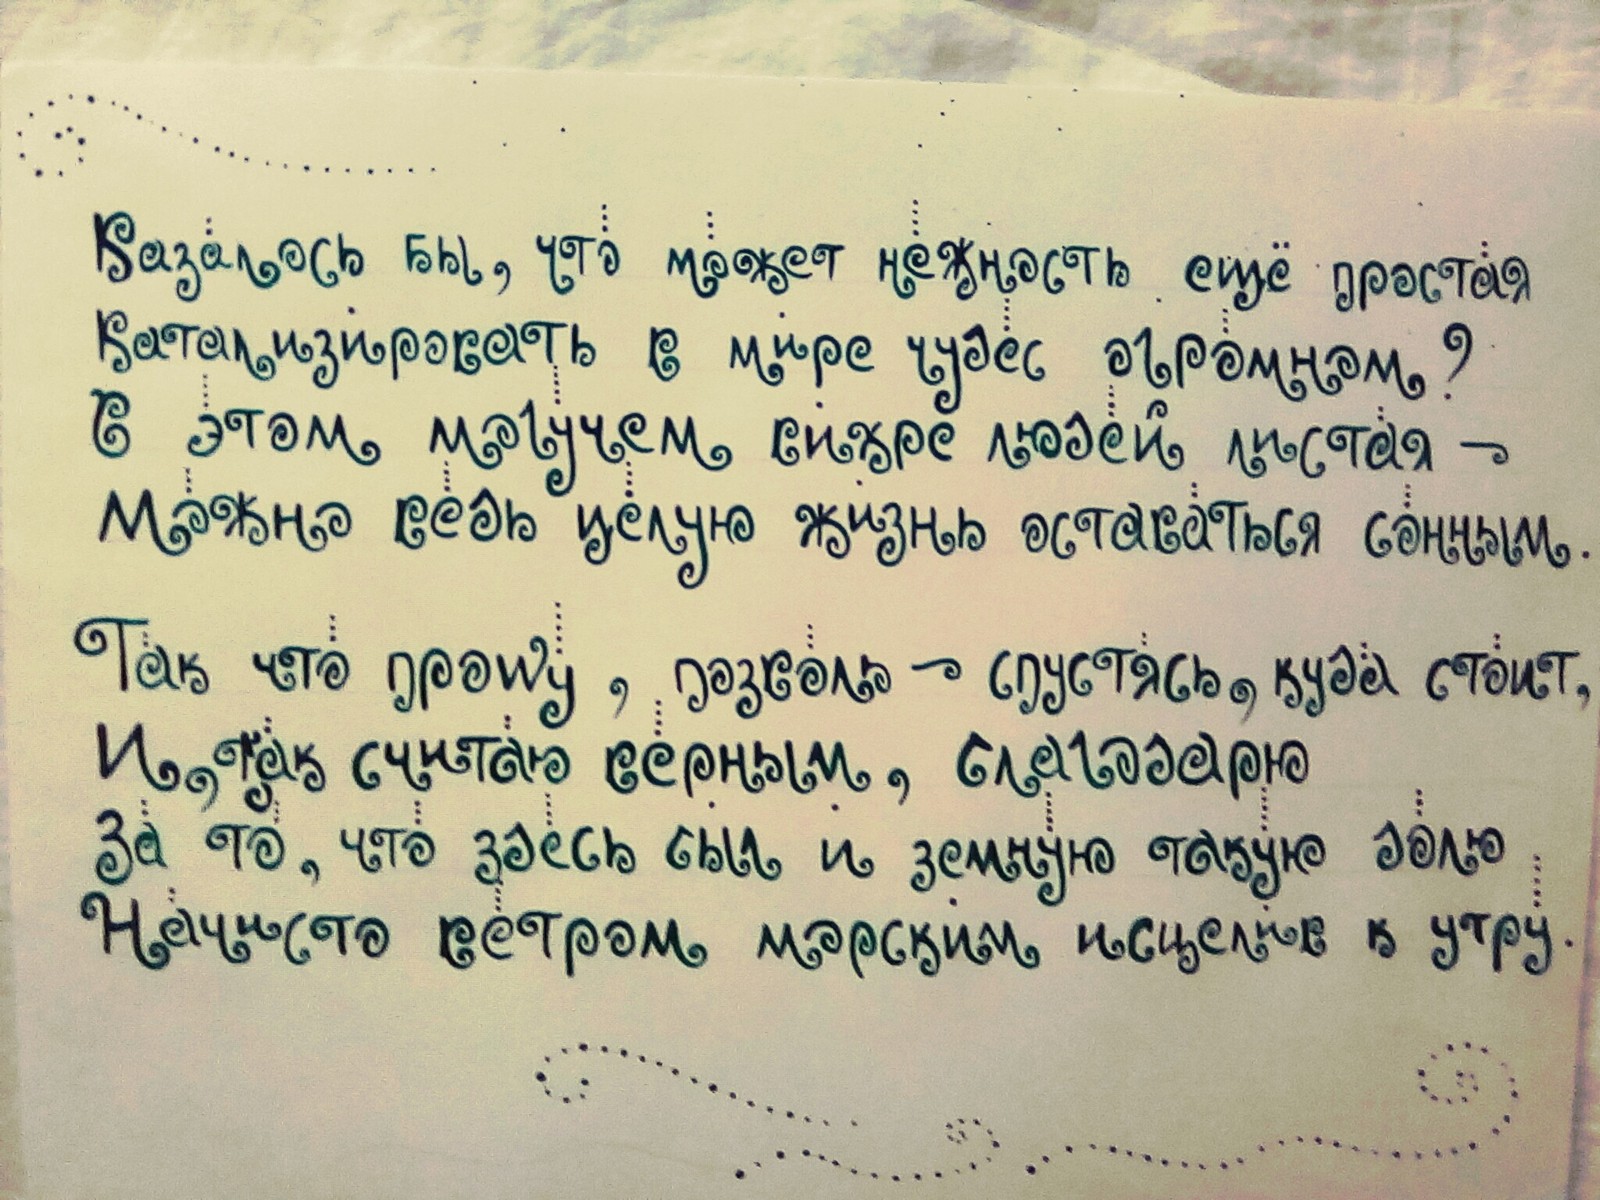 Казалось бы, что может нежность ещё простая
Катализировать в мире чудес огромном?
В этом могучем вихре людей листая –
Можно ведь целую жизнь оставаться сонным.
Так что прошу, позволь – спустясь, куда стоит,
И, так считаю верным, благодарю
За то, что здесь был и земную такую долю
Начисто ветром морским исцелив к утру.